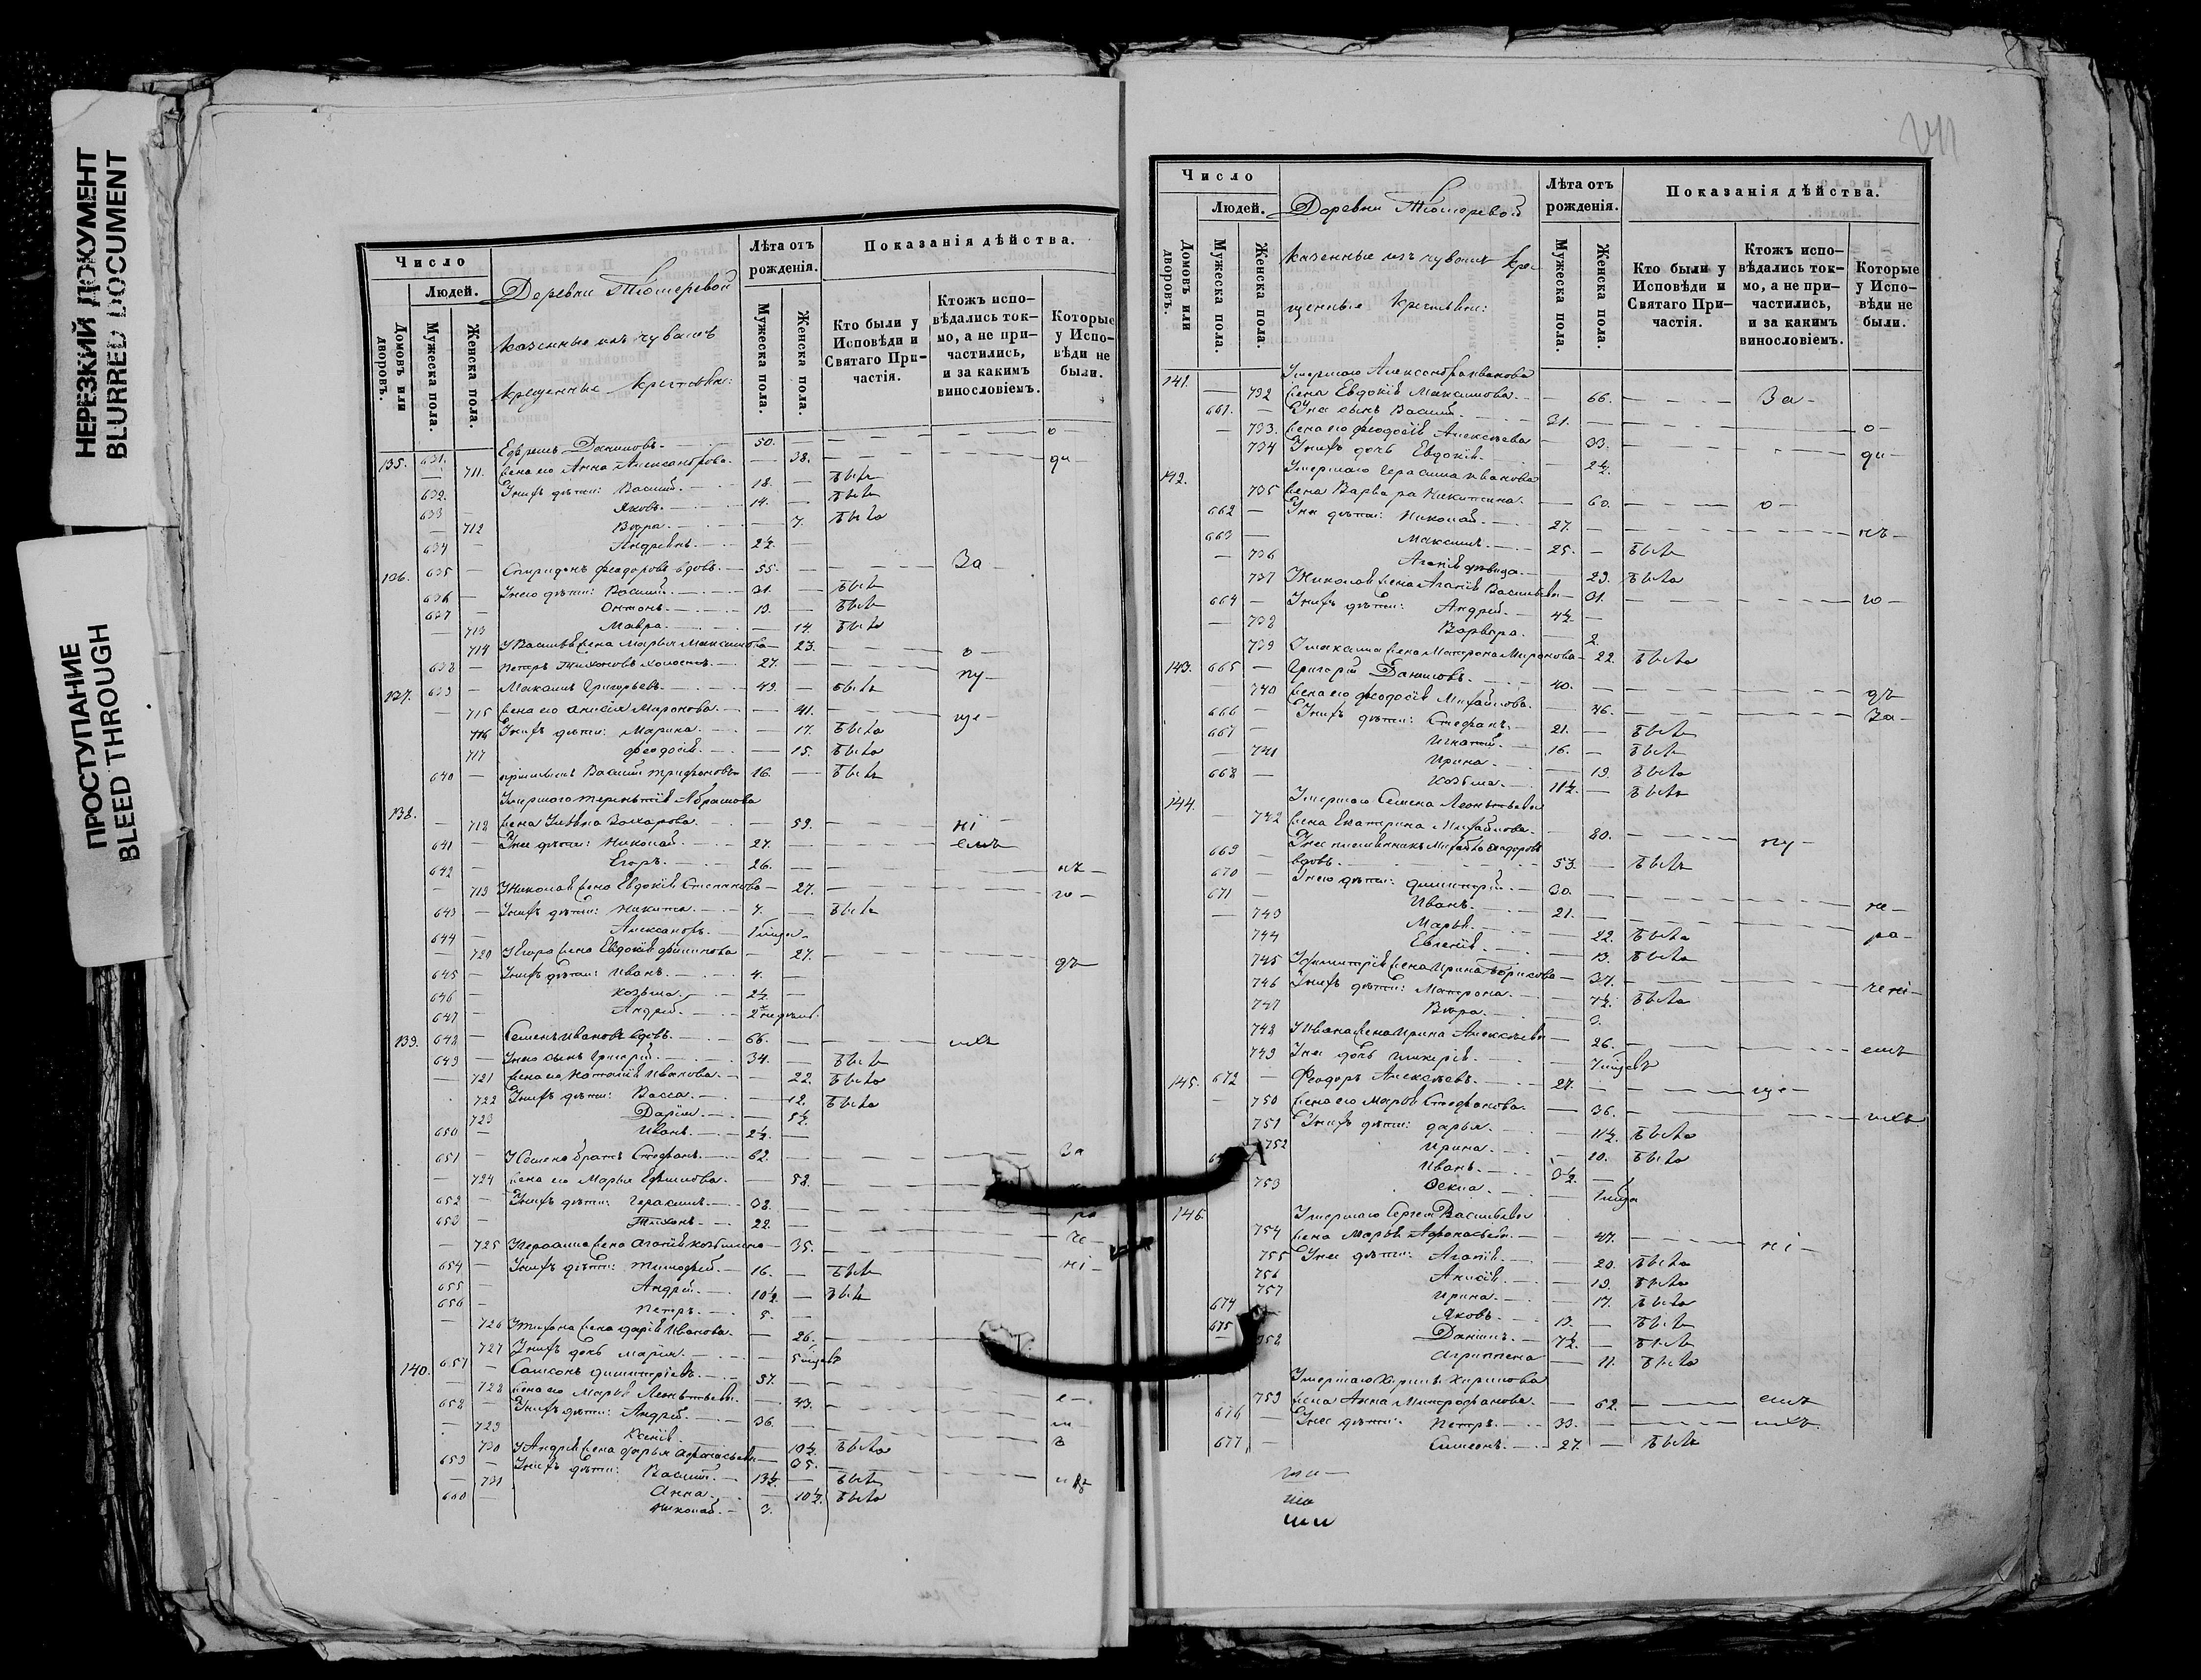 НЕРЕЗКИЙ ДОКУМЕНТ
BLURRED DOCUMENT
ПРОСТУПАНИЕ
BLEED THROUGH
Число
Людей.
Домовъ или дворовъ.
Мужеска пола.
Женска пола.
Деревни Тюмеревой
казенные изъ чувашъ
крещенные крестьяне:
Лѣта отъ рожденія.
Мужеска пола.
Женска пола.
Показанія дѣйства.
Кто были у Исповѣди и Святаго Причастія.
Ктожъ исповѣдались токмо, а не причастились, и за какимъ винословіемъ.
Которые у Исповѣди не были.
135. 631. Ефремъ Даниловъ. 50. о
711. жена его Анна Александрова. 38. ди
632. У нихъ дѣти: Василій. 18. былъ
633 Яковъ. 14. былъ
712 Вѣра. 7. была
634 Андреянъ. 2½.
136. 635 Спиридонъ Феодоровъ вдовъ. 55. За
636 У него дѣти: Василій. 31. былъ
637 Антонъ. 19. былъ
713 Мавра. 14. была
714 У Василія жена Марья Максимова 23. о
638 Петръ Тихоновъ холостъ. 27. пу
137. 639 Максимъ Григорьевъ. 49. былъ
715 жена его Анисія Миронова. 41. ще
716 У нихъ дѣти: Марина. 17. была
717 Феодосія. 15. была
640 пріимышъ Василій Трифоновъ 16. былъ
138. Умершаго Терентія Абрамова
718 жена Ульяна Захарова. 59. ні
641 У нея дѣти: Николай. 27. емъ
642 Егоръ. 26. нъ
719 У Николая жена Евдокія Степанова 27. го
643 У нихъ дѣти: Никита. 7. былъ
644 Александръ.
720 У Егора жена Евдокія Филипова 27. дъ
645 У нихъ дѣти: Иванъ. 4.
646 Козьма. 2½.
647 Андрей.
139. 648 Семенъ Ивановъ вдовъ. 66. ихъ
649 У него сынъ Григорій. 34. былъ
721 жена его Наталія Иванова. 22. была
722 У нихъ дѣти: Васса. 12. была
723 Дарія. 5½.
650 Иванъ. 2½.
651 У Семена братъ Стефанъ. 62. За
724 жена его Марья Ефимова. 58.
652 У нихъ дѣти: Герасимъ. 38. ра
653 Тихонъ. 22. че
725 У Герасима жена Агафія Козьмина 35. ні
654 У нихъ дѣти: Тимофей. 16. былъ
655 Андрей. 10½. былъ
656 Петръ. 5.
726 У Тихона жена Дарія Иванова. 26.
727 У нихъ дочь Марія.
140. 657 Самсонъ Димитріевъ. 57.
728 жена его Марья Леонтьева. 43. е
658 У нихъ дѣти: Андрей. 36. м
729 Ксенія. 10½. была ъ
730 У Андрея жена Дарья Афанасьева 35.
659 У нихъ дѣти: Василій. 13½. былъ
731 Анна. 10½. была
660 Николай. 3.
Число
Людей.
Домовъ или дворовъ.
Мужеска пола.
Женска пола.
Деревни Тюмеревой
казенные изъ чувашъ кре-
щенные крестьяне:
Лѣта отъ рожденія.
Мужеска пола.
Женска пола.
Показанія дѣйства.
Кто были у Исповѣди и Святаго Причастія.
Ктожъ исповѣдались токмо, а не причастились, и за какимъ винословіемъ.
Которые у Исповѣди не были.
141. Умершаго Александра Иванова
732 жена Евдокія Максимова. 66. За
661. У нея сынъ Василій. 31. о
733. жена его Феодосія Алексѣева 33. ди
734 У нихъ дочь Евдокія. 2½.
142. Умершаго Герасима Иванова
735 жена Варвара Никитина. 60. о
662 У нея дѣти: Николай. 27. нъ
663 Максимъ. 25. былъ
736 Агафія дѣвица. 29. была
737 У Николая жена Агафія Васильева 31. го
664 У нихъ дѣти: Андрей. 4½.
738 Варвара. 2.
739 У Максима жена Матрона Миронова 22. была
143. 665 Григорій Даниловъ. 40. дъ
740 жена его Феодосія Михайлова. 46. За
666 У нихъ дѣти: Стефанъ. 21. былъ
667 Игнатій. 16. былъ
741 Ирина. 19. была
668 Козьма. 11½. былъ
144. Умершаго Семена Леонтьева
742 жена Екатерина Михайлова. 80. пу
669 У нея племянникъ Михайло Феодоровъ
вдовъ. 53. былъ
670 У него дѣти: Димитрій. 30. не
671 Иванъ. 21. ра
743 Марья. 22. была
744 Евгенія. 13. была
745 У Димитрія жена Ирина Борисова 37. чені
746 У нихъ дѣти: Матрона. 7½. была
747 Вѣра. 3.
748 У Ивана жена Ирина Алексѣева 26. емъ
749 У нея дочь Гликерія.
145. 672 Феодоръ Алексѣевъ. 27. ще
750 жена его Марья Стефанова. 36. ихъ
751 У нихъ дѣти: Дарья. 11½. была
752 Ирина. 10. была
Иванъ. 3½.
753 Фекла.
146. Умершаго Сергея Васильева
754 жена Марья Афанасьева. 47. ні
755 У нея дѣти: Агафія. 20. была
756 Анисія. 19. была
757 Ирина. 17. была
674 Яковъ. 13. былъ
675 Даніилъ. 7½. былъ
758 Агриппена 11. была
Умершаго Кирила Кирилова
759 жена Анна Митрофанова. 62. емъ
676 У нея дѣти: Петръ. 33. ихъ
677 Симеонъ. 27. былъ